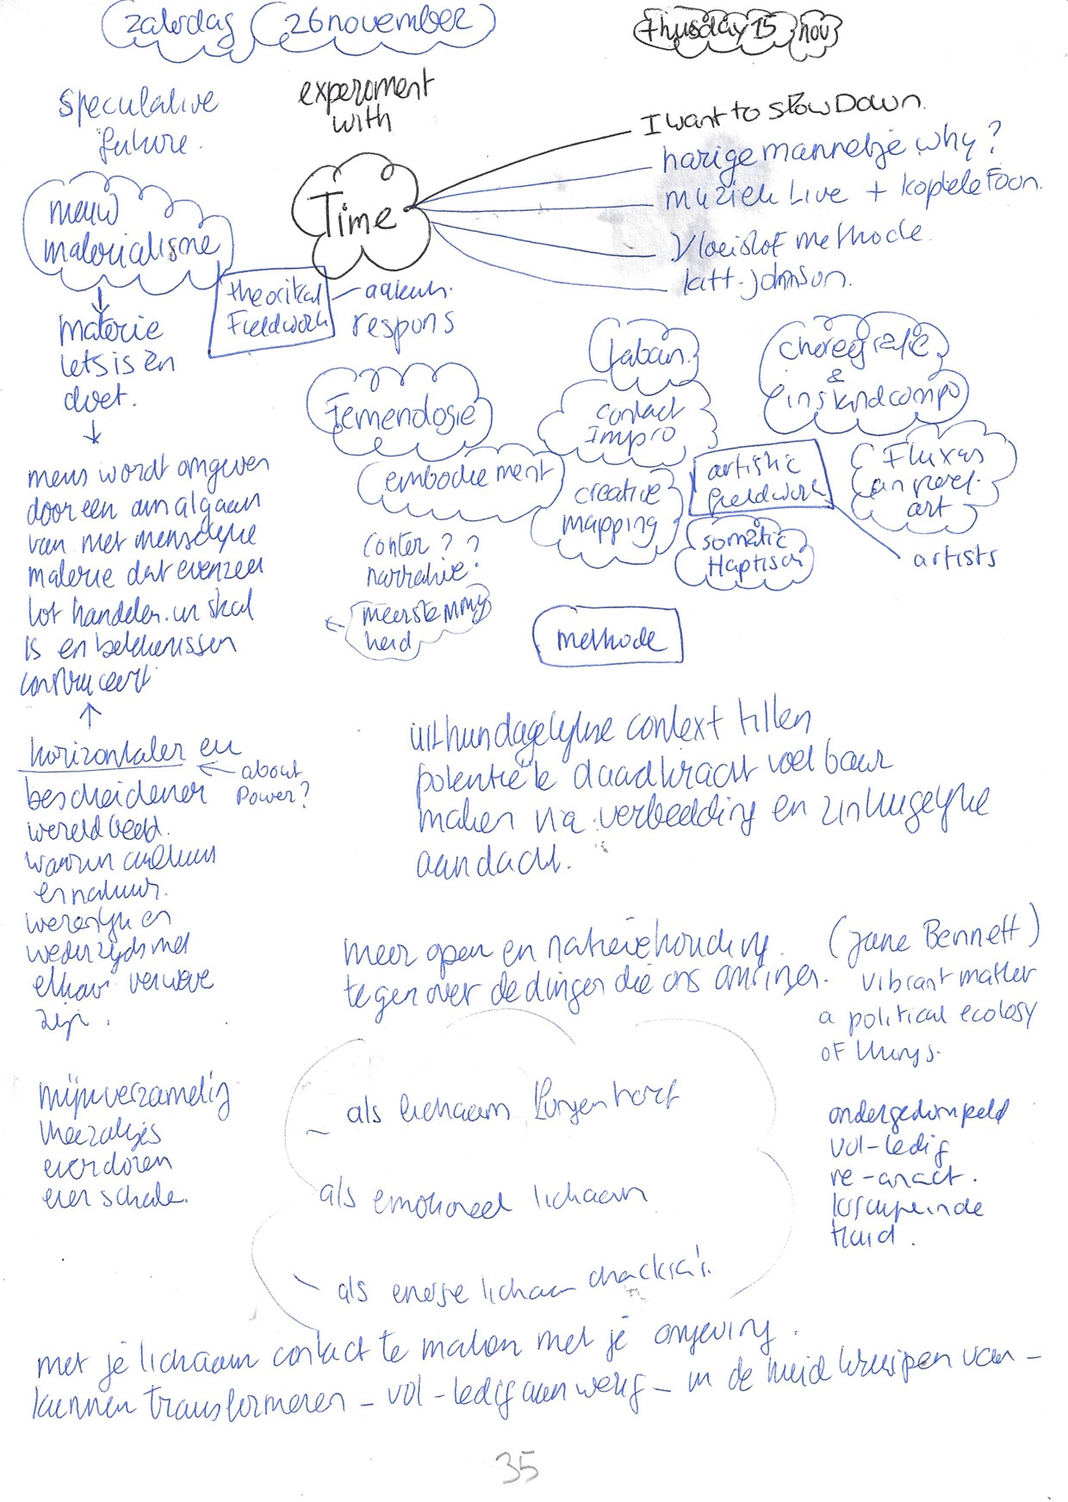 zaterdag 26 november
thusday 15 nov
speculative
future.
experoment
with
Time
I want to slow Down.
harige mannetje why?
muziek Live + koptelefoon.
Vloeistof methode
katt-johnson.
nieuw
materialisme
theoritcal
Fieldwork
respons
materie
iets is en
doet.
laban.
contact
Impro
choregrafie
&
instandcompo
Femenologie
embodiement
creative
mapping
artistic
fieldwork
Fluxus
an perf.
art
somatic
Haptisch
artists
conter ? ?
narrative.
meerstemmig
heid
methode
mens wordt omgeven
door een aan
van niet menselijke
materie dat evenzeer
tot handelen in staat
is en betekenissen
construeert
horizontaler en
about
Power?
bescheidener
wereldbeeld.
waarin cultuur
en natuur.
wederzijds met
elkaar verweve
zijn.
uit hun dagelijkse context tillen
potentiële daadkracht voelbaar
maken via verbeelding en zintuigelijke
aandacht.
meer open en houding
tegenover de dingen die ons omringen.
(Jane Bennett)
vibrant matter
a political ecology
of things.
mijn verzameling
everdoren
eierschale.
als lichaam
als emotioneel lichaam
als energie lichaam chackra's.
ondergedompeld
vol-ledig
re-anact.
huid.
met je lichaam contact te maken met je omgeving.
kunnen transformeren - vol-ledig aanwezig - in de huid kruipen van -
35